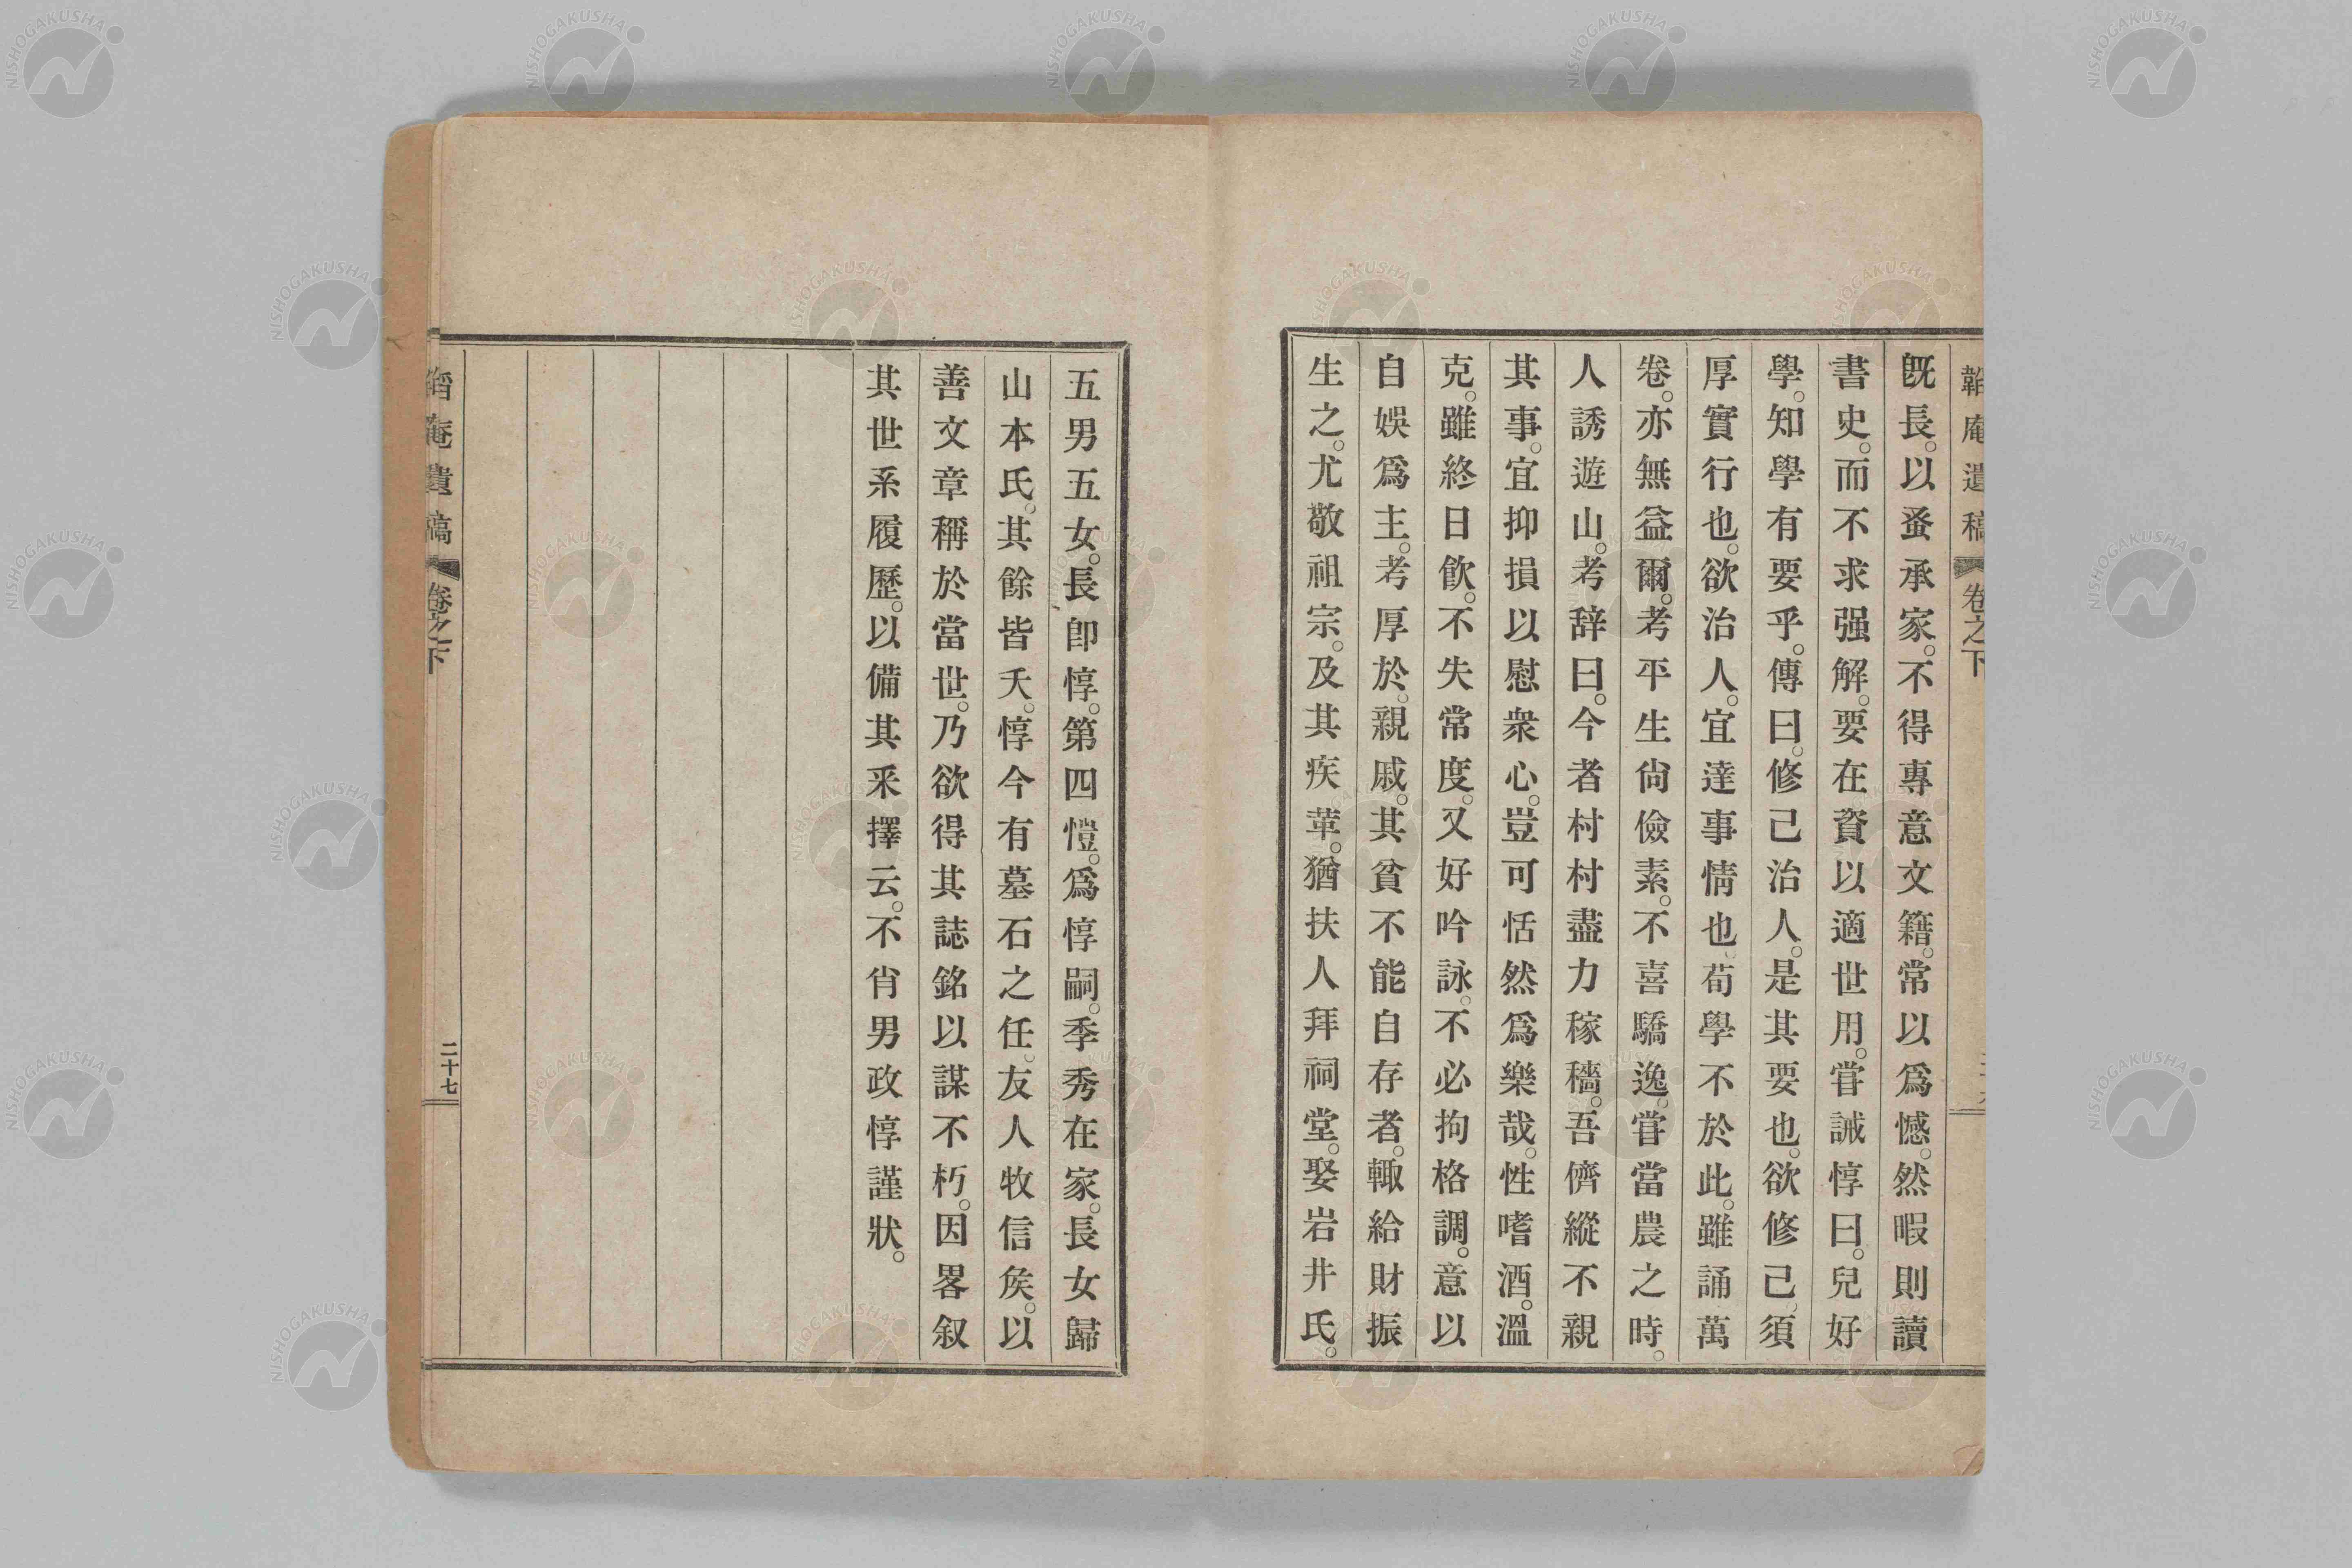 韜庵遺稿 卷之下
既長。以蚤承家。不得專意文籍。常以爲憾。然暇則讀
書史。而不求强解。要在資以適世用。甞誡惇曰。兒好
學。知學有要乎。傳曰。修己治人。是其要也。欲修己。須
厚實行也。欲治人。宜達事情也。荀學不於此。雖誦萬
卷。亦無益爾。考平生尙儉素。不喜驕逸。甞當農之時。
人誘遊山。考辞曰。今者村村盡力稼穡。吾儕縱不親
其事。宜抑損以慰衆心。豈可恬然爲樂哉。性嗜酒。溫
克。雖終日飮。不失常度。又好吟詠。不必拘格調。意以
自娛爲主。考厚於。親戚。其貧不能自存者。輙給財振
生之。尤敬祖宗。及其疾革。猶扶人拜祠堂。娶岩井氏。
五男五女。長卽惇。第四愷。爲惇嗣。季秀在家。長女歸
山本氏。其餘皆夭。惇今有墓石之任。友人牧信矦。以
善文章稱於當世。乃欲得其誌銘以謀不朽。因畧叙
其世系履歷。以備其釆擇云。不肖男政惇謹狀。
韜庵遺稿 卷之下 二十七
NISHOGAKUSHA